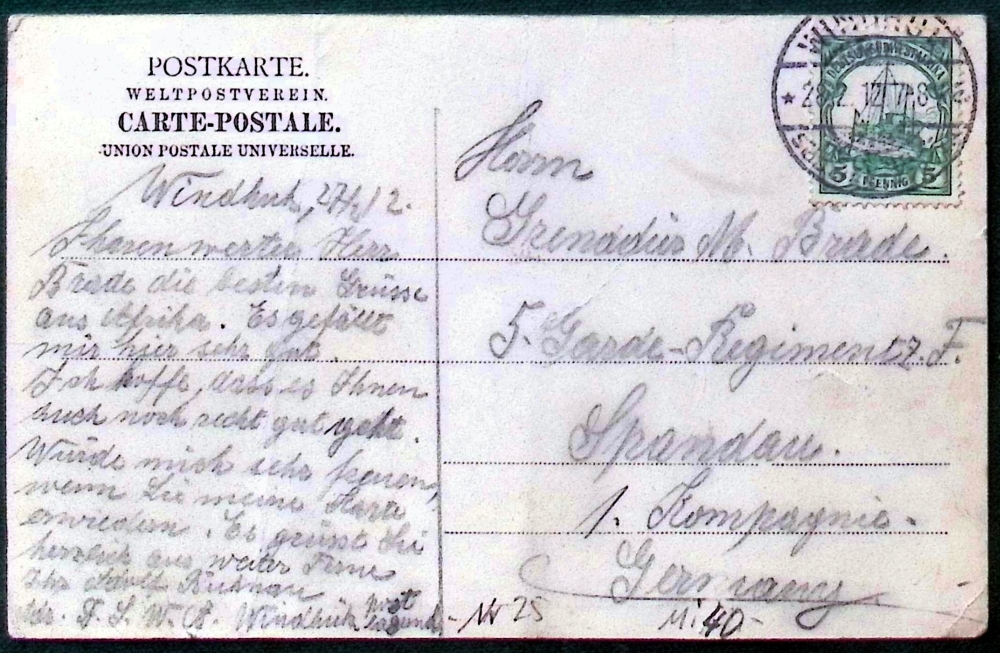 POSTKARTE.
WELTPOSTVEREIN.
CARTE-POSTALE.
UNION POSTALE UNIVERSELLE.
Windhuk, 27/2 12.
werter Herr
Brede die besten Grüsse
aus Afrika. Es gefällt
mir hier sehr gut.
Ich hoffe, dass es Ihnen
auch noch recht gut geht.
Würde mich sehr freuen,
wenn Sie meine Karte
erwiedern. Es grüsst Sie
herzlich aus weiter Ferne
Ihr Adolf
D. S. W. A. Windhuk
WINDHUK
28.2.12. 7-8
DEUTSCH-SÜDWESTAFRIKA
5 PFENNIG 5
Herrn
Grenadier M. Brede.
5. Garde-Regiment z. F.
Spandau.
1. Kompagnie.
Germany
25
Mi. 40-